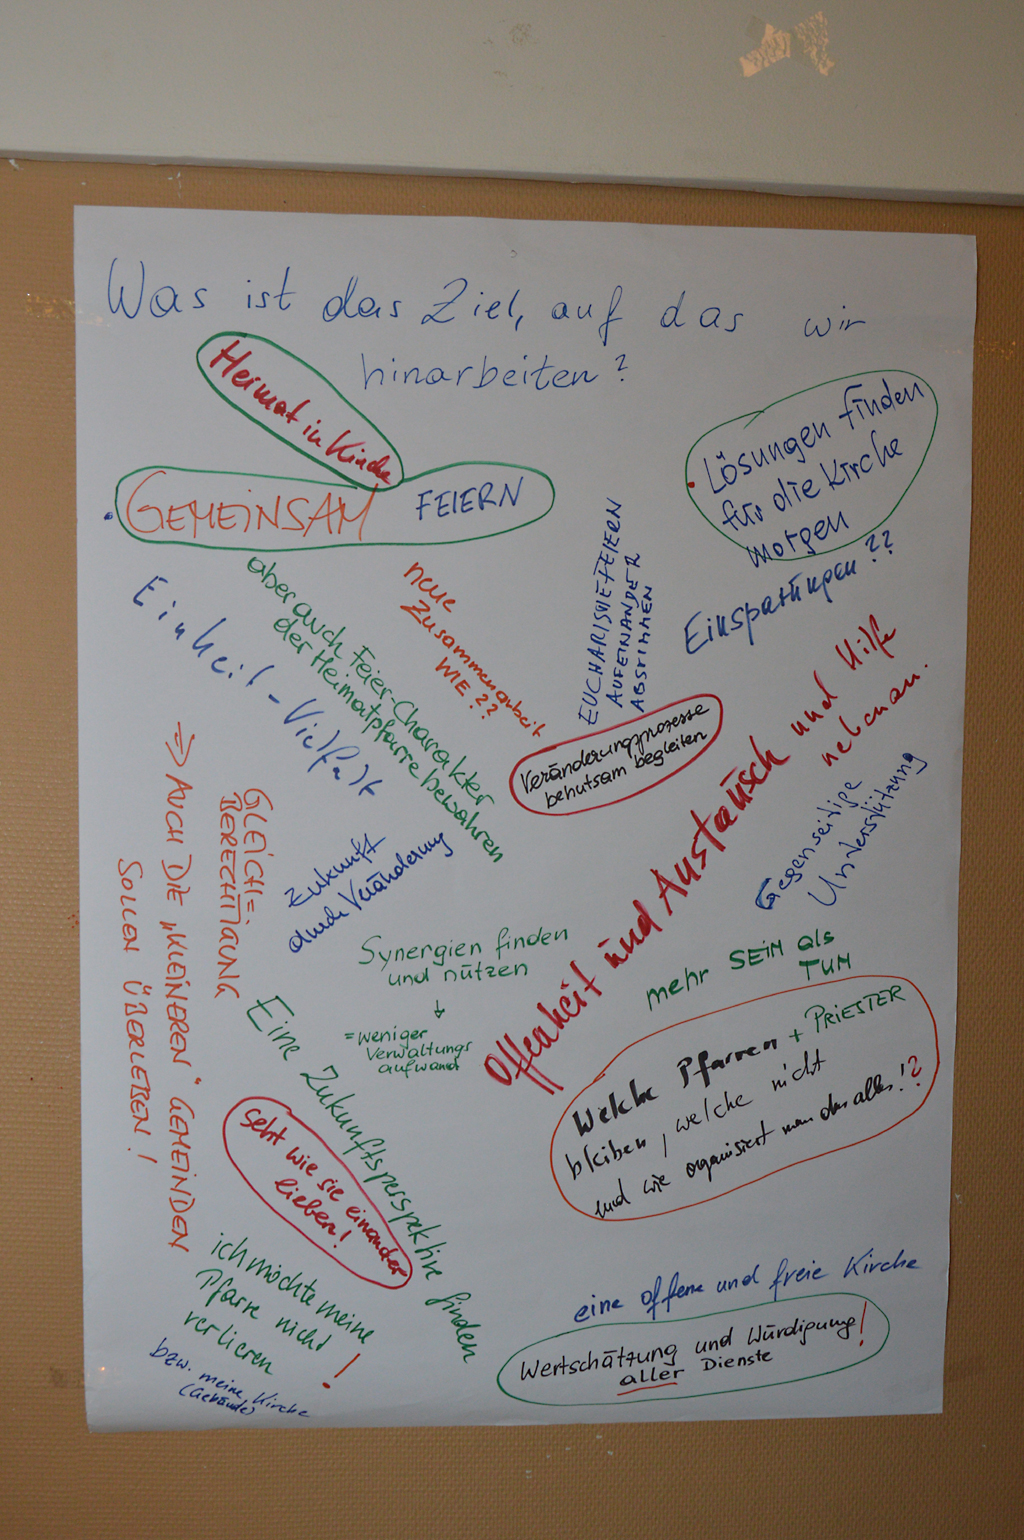 Was ist das Ziel, auf das wir
hinarbeiten?
Heimat in Kirche
GEMEINSAM FEIERN
Lösungen finden
für die Kirche
morgen
Einsparungen??
aber auch Feier-Charakter
der Heimatpfarre bewahren
neue
Zusammenarbeit
WIE??
EUCHARISTIE FEIERN
AUFEINANDER
ABSTIMMEN
Einheit - Vielfalt
Veränderungsprozesse
behutsam begleiten
Offenheit und Austausch und Hilfe
nebenan.
Gegenseitige
Unterstützung
GLEICH=
BERECHTIGUNG
⇒ AUCH DIE „KLEINEREN" GEMEINDEN
SOLLEN ÜBERLEBEN!
Zukunft
durch Veränderung
Synergien finden
und nützen
↓
= weniger
Verwaltungs
aufwand
mehr SEIN als
TUN
Eine Zukunftsperspektive finden
Welche Pfarren + PRIESTER
bleiben, welche nicht
und wie organisiert man das alles!?
Seht wie sie einander
lieben!
ich möchte meine
Pfarre nicht
verlieren!
bzw. meine Kirche
(Gebäude)
eine offene und freie Kirche
Wertschätzung und Würdigung!
aller Dienste